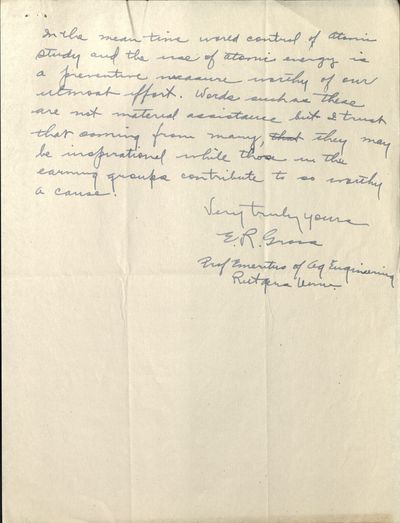 In the mean-time world control of atomic
study and the use of atomic energy is
a preventive measure worthy of our
utmost effort. Words such as these
are not material assistance but I trust
that coming from many, that they may
be inspirational while those in the
earning groups contribute to so worthy
a cause.
Very truly yours
E. R. Gross
Prof Emeritus of Ag Engineering
Rutgers Univ.